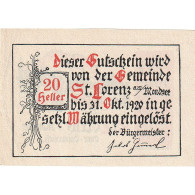 Dieser Gutschein wird
von der Gemeinde
20 Heller
St. Lorenz a/Mondsee
bis 31. Okt. 1920 in ge
setzl. Währung eingelöst.
der Bürgermeister: